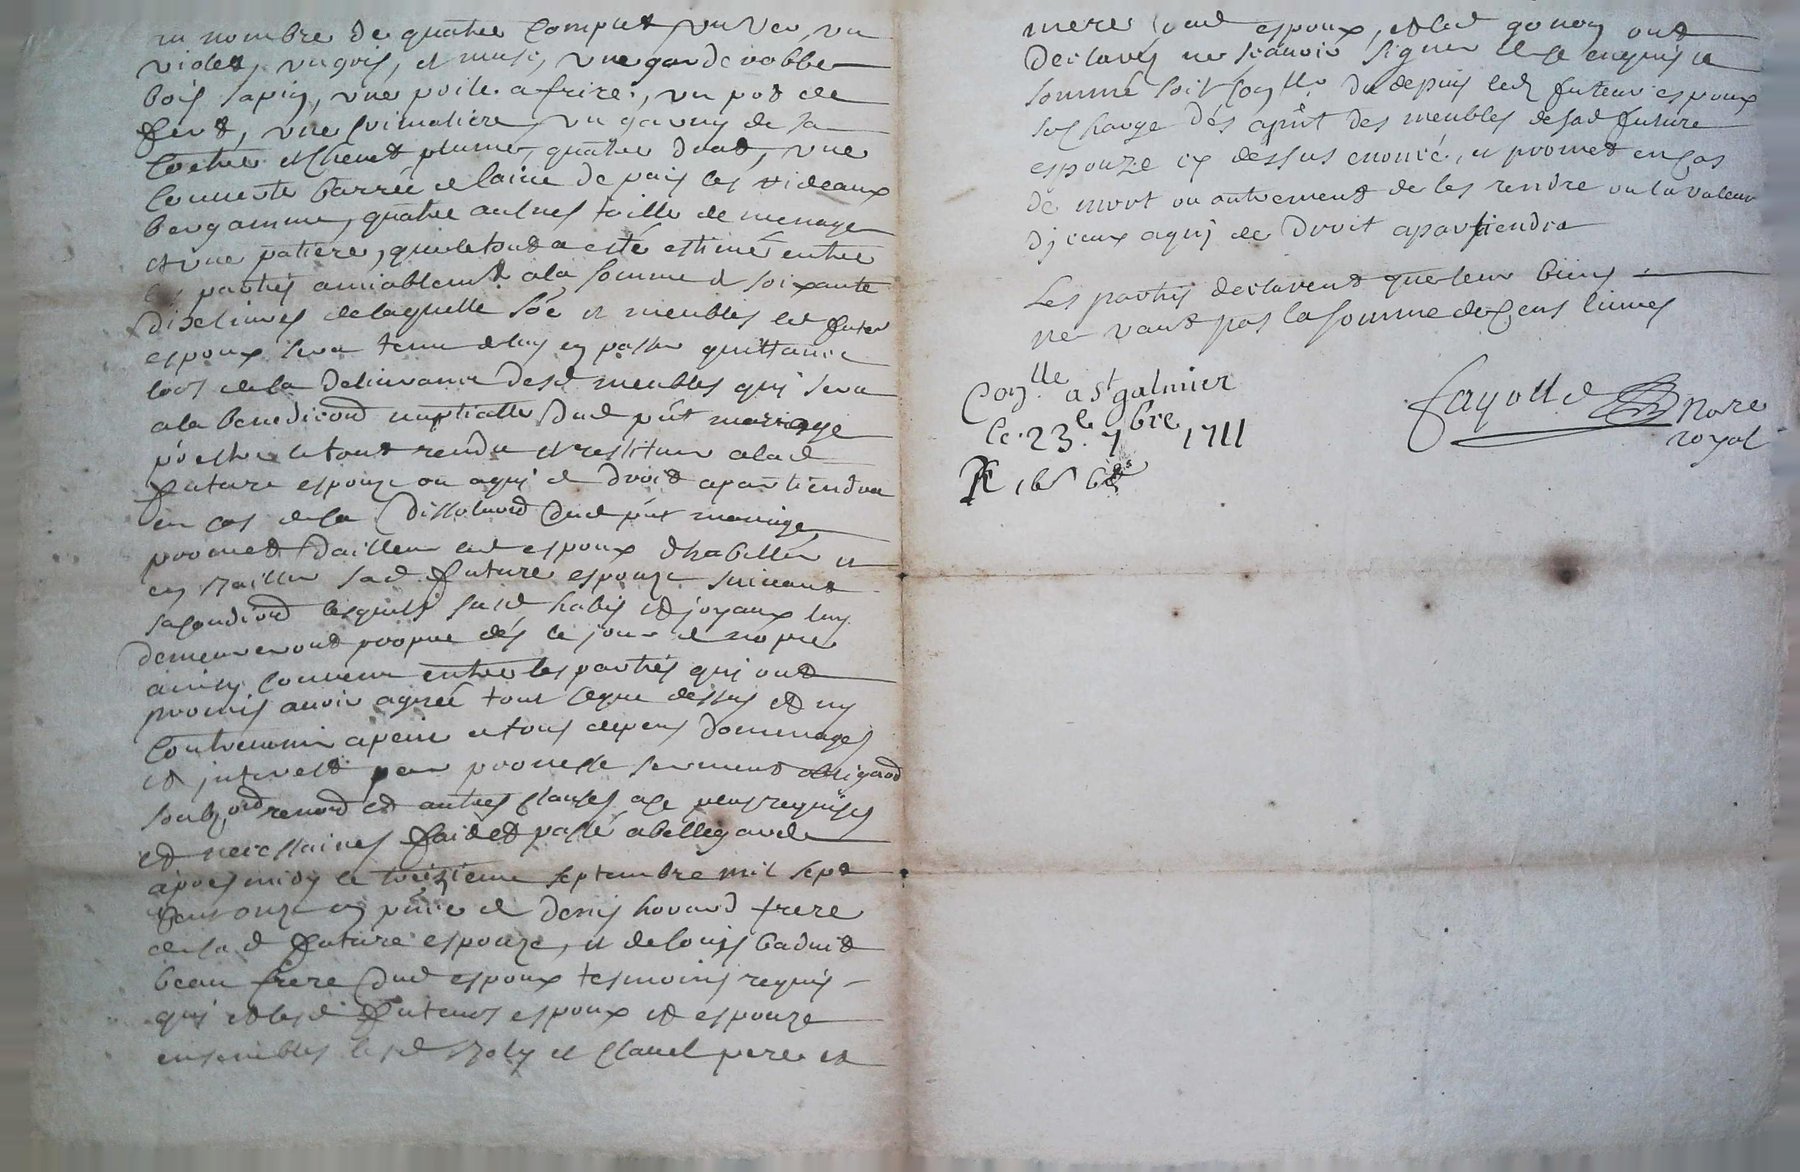 au nombre de quatre complet un ver, un
violet, un gris, et musc, une garderobbe
bois sapin, une poile a frire, un pot de
ferd, une cuimatiere, un garny de sa
coetre et chevet plume, quatre drad, une
couverte barrée de laine de pais les rideaux
bergamme, quatre aulnes toille de menage
et une patiere, qui le tout a esté estimé entre
les parties amiablemt a la somme de soixante
dix livres de laquelle soe et meubles led futur
espoux sera tenu de luy en passer quittance
lors de la delivrance desd meubles qui sera
a la benediond nuptialle dud pnt mariage
p estre le tout rendu et restitué a lad
future espouze ou a qui de droit apartiendra
en cas de la dissoluond dud pnt mariage
promet d'ailleur led espoux d'habiller et
en sa future espouze suivant
sa condiond lesquels susd habis et joyaux luy
demeureront propre dés ce jour de
ainsy convenu entre les partiés qui ont
promis avoir agreé tout ce que dessus et ny
contrevenir a peine de tous depens dommages
et interest par promesse serment obligaod
soubzond renond et autres clauses a ce plus requises
et necessaires fait et passé a bellegarde
apres midy le treizieme septembre mil sept
cens onze en pnce de denis hovard frere
de sad future espouze, et de louis badnid
beau frere dud espoux tesmoins requis
qui et lesd futeurs espoux et espouze
ensembles lesd et clavel pere et
mere dud espoux, et led gonon ont
declarés ne scavoir signer de ce enquis et
sommé soit conlle du depuis led futeur espoux
sos charge dés apnt des meubles de sad future
espouze cy dessus enoncé, et promet en cas
de mort ou autrement de les rendre ou la valeur
d'iceux a qui de droit apartiendra
Les partis declarent que leur biens
ne vaut pas la somme de cens livres
Conlle a St galmier
le 23e 7bre 1711
R 16s 6ds
fayolle
Nore
royal